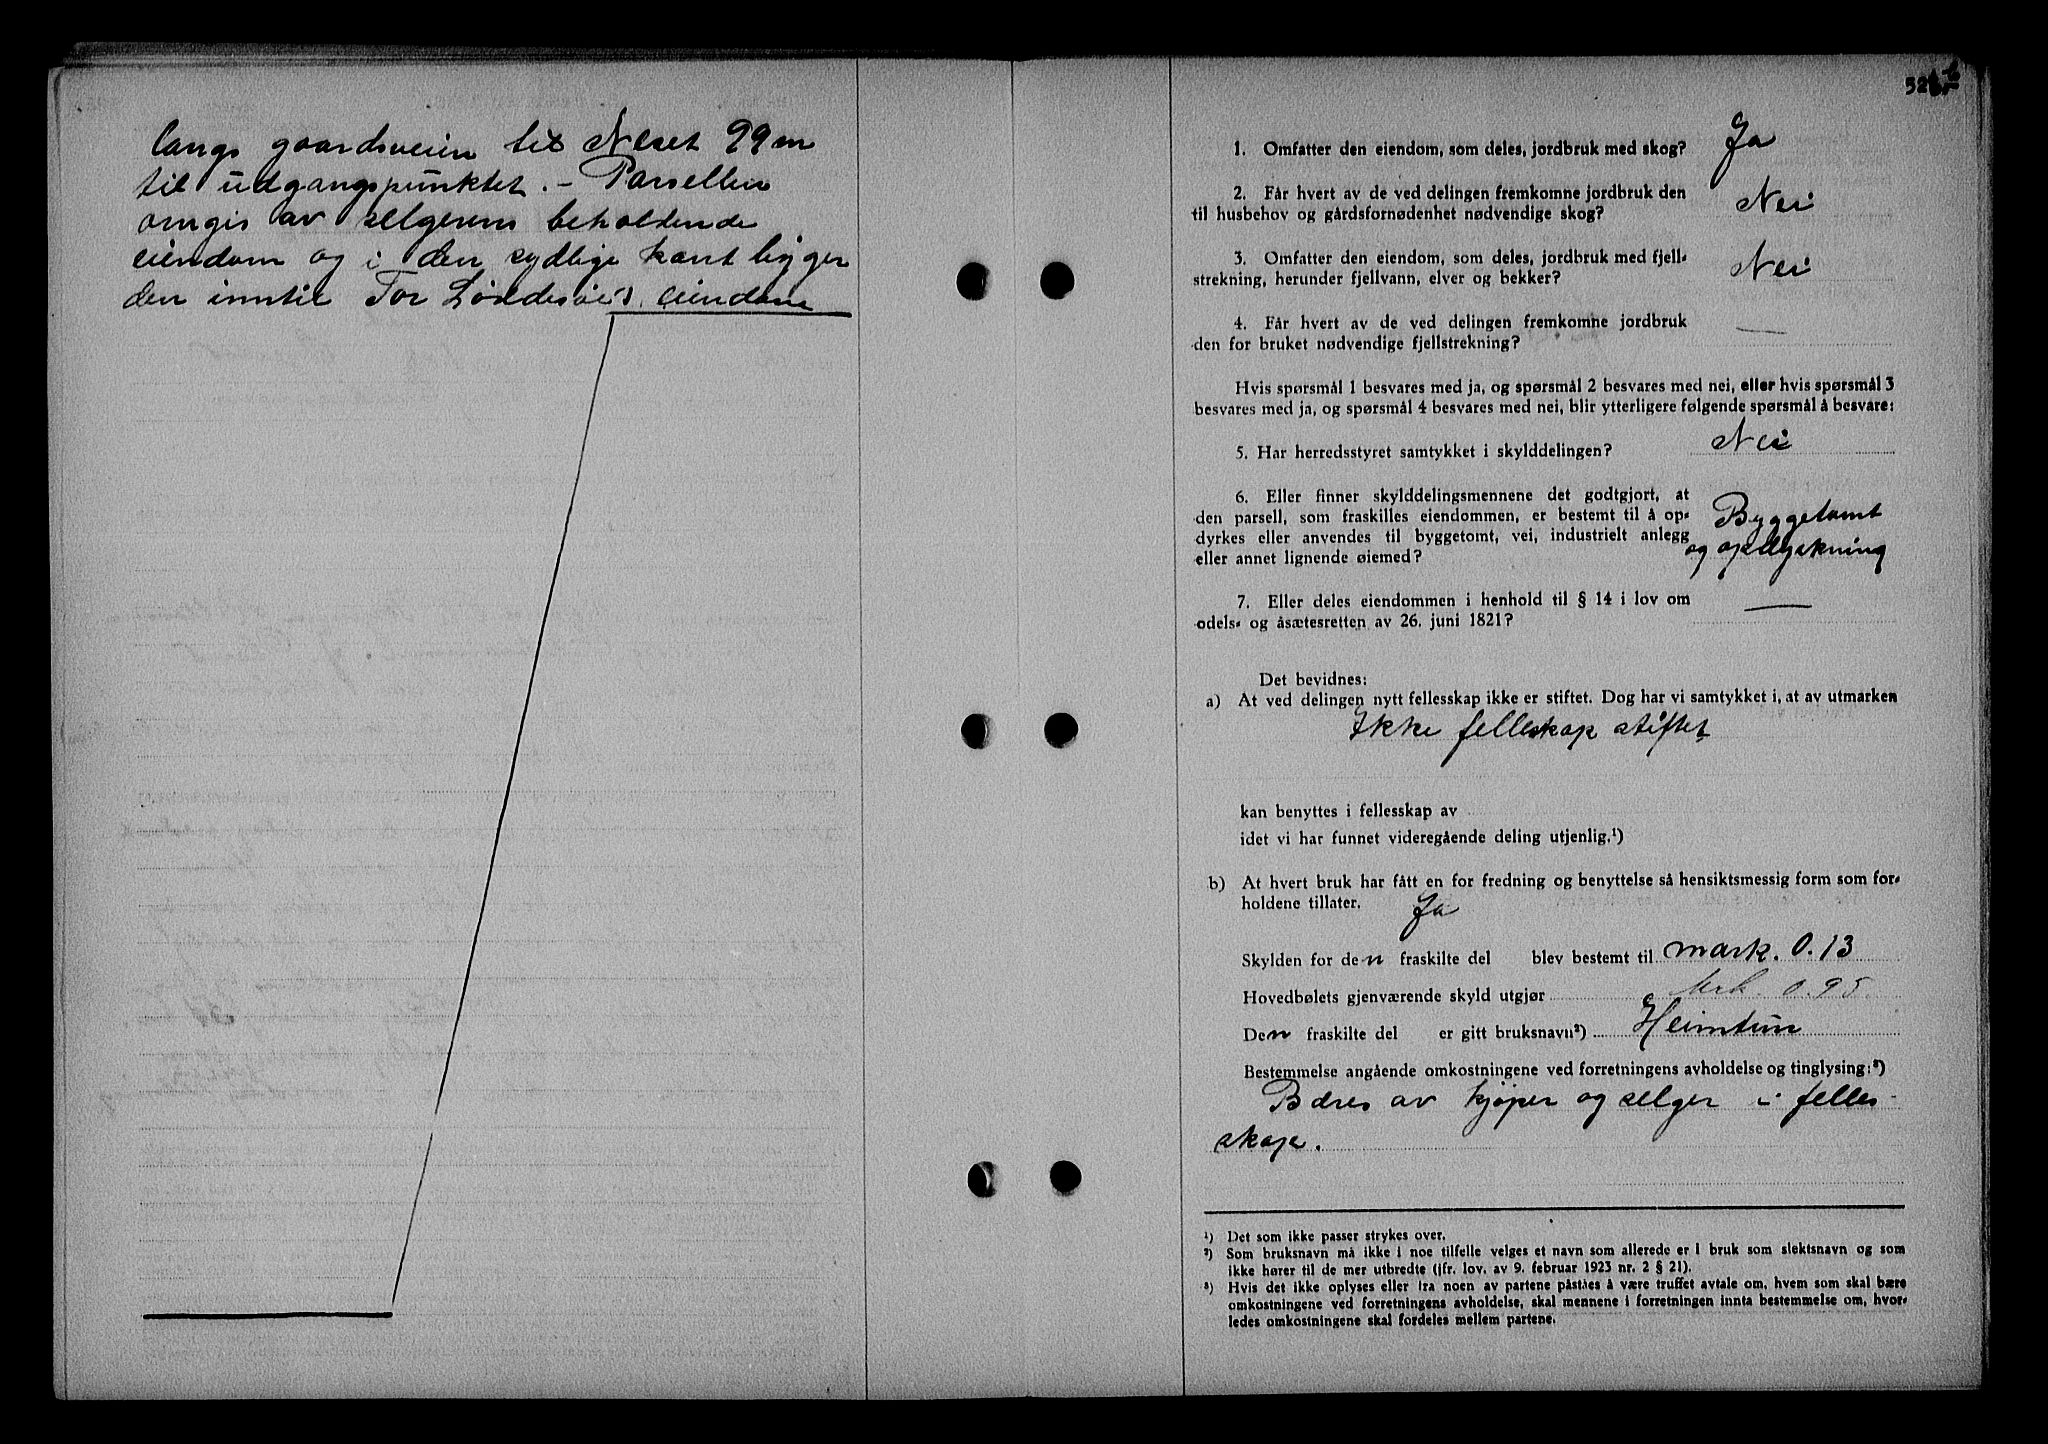 langs gaardsveien til Neset 99 m
til udgangspunktet. – Parsellen
omgis av selgerens beholdende
eiendom og i den sydlige kant ligger
den inntil Tor eiendom
1. Omfatter den eiendom, som deles, jordbruk med skog? Ja
2. Får hvert av de ved delingen fremkomne jordbruk den
til husbehov og gårdsfornødenhet nødvendige skog? Nei
3. Omfatter den eiendom, som deles, jordbruk med fjell-
strekning, herunder fjellvann, elver og bekker? Nei
4. Får hvert av de ved delingen fremkomne jordbruk
den for bruket nødvendige fjellstrekning? —
Hvis spørsmål 1 besvares med ja, og spørsmål 2 besvares med nei, eller hvis spørsmål 3
besvares med ja, og spørsmål 4 besvares med nei, blir ytterligere følgende spørsmål å besvare:
5. Har herredsstyret samtykket i skylddelingen? Nei
6. Eller finner skylddelingsmennene det godtgjort, at
den parsell, som fraskilles eiendommen, er bestemt til å op- Byggetomt
dyrkes eller anvendes til byggetomt, vei, industrielt anlegg og opdyrkning
eller annet lignende øiemed?
7. Eller deles eiendommen i henhold til § 14 i lov om —
odels- og åsætesretten av 26. juni 1821?
Det bevidnes:
a) At ved delingen nytt fellesskap ikke er stiftet. Dog har vi samtykket i, at av utmarken
Ikke felleskap stiftet
kan benyttes i fellesskap av
idet vi har funnet videregående deling utjenlig.¹)
b) At hvert bruk har fått en for fredning og benyttelse så hensiktsmessig form som for-
holdene tillater. Ja
Skylden for den fraskilte del blev bestemt til mark. 0.13
Hovedbølets gjenværende skyld utgjør Mrk. 0.95.
Den fraskilte del er gitt bruksnavn²) Heimtun
Bestemmelse angående omkostningene ved forretningens avholdelse og tinglysing:³)
Bæres av kjøper og selger i felles-
skap.
¹) Det som ikke passer strykes over.
²) Som bruksnavn må ikke i noe tilfelle velges et navn som allerede er i bruk som slektsnavn og som
ikke hører til de mer utbredte (jfr. lov. av 9. februar 1923 nr. 2 § 21).
³) Hvis det ikke oplyses eller fra noen av partene påståes å være truffet avtale om, hvem som skal bære
omkostningene ved forretningens avholdelse, skal mennene i forretningen innta bestemmelse om, hvor-
ledes omkostningene skal fordeles mellem partene.